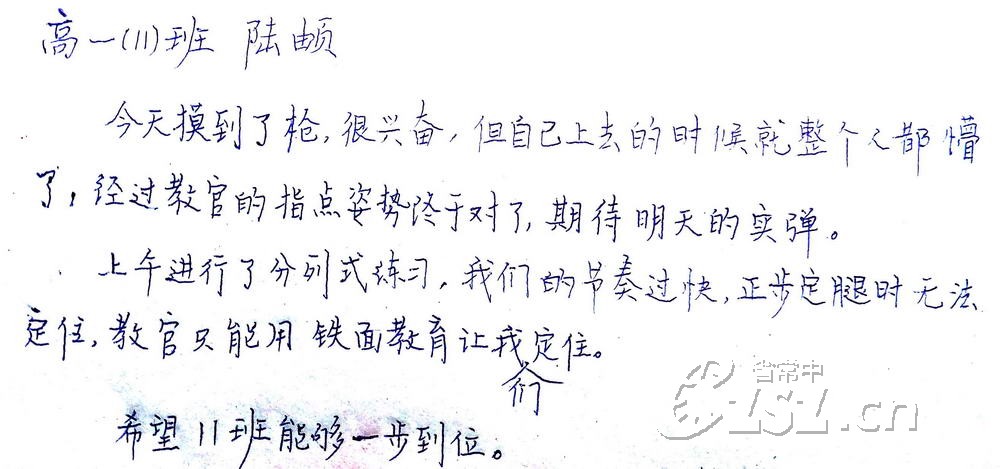 高一(11)班 陆頔
今天摸到了枪,很兴奋,但自己上去的时候就整个人都懵
了,经过教官的指点姿势终于对了,期待明天的实弹。
上午进行了分列式练习,我们的节奏过快,正步定腿时无法
定住,教官只能用铁面教育让我们定住。
希望11班能够一步到位。
省常中
CZSZ.cn